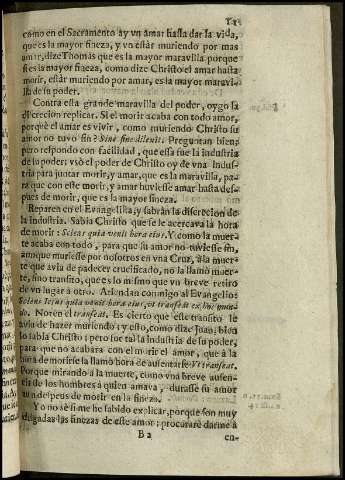 como en el Sacramento ay vn amar hasta dar la vida,
que es la mayor fineza, y vn estàr muriendo por mas
amar, dize Thomas que es la mayor marauilla porque
si es la mayor fineza, como dize Christo el amar hasta
morir, estàr muriendo por amar, es la mayor maraui-
lla de su poder.
Contra esta grande marauilla del poder, oygo la
discrecion replicar. Si el morir acaba con todo amor,
porquè el amar es viuir, como muriendo Christo su
amor no tuvo fin? Sine fine dilexit. Preguntan bien;
pero respondo con facilidad, que essa fue la industria
de su poder: vsò el poder de Christo oy de vna indus-
tria para juntar morir, y amar, que es la marauilla, pa-
ra que con este morir, y amar huuiesse amar hasta des-
pues de morir, que es la mayor fineza.
Reparen en el Euangelista, y sabràn la discrecion de
la industria. Sabia Christo que se le acercaua la hora
de morir: Sciens quia venit hora eius. Y como la muer-
te acaba con todo, para que su amor no tuuiesse fin,
aunque muriesse por nosotros en vna Cruz, à la muer-
te que auia de padecer crucificado, no la llamò muer-
te, sino transito, que es lo mismo que vn breue retiro
de vn lugar à otro. Atiendan conmigo al Euangelio:
Sciens Iesus quia venit hora eius, vt transeat ex hoc mun-
do. Noten el transeat. Es cierto que este transito le
auia de hazer muriendo; y esto, como dize Juan, bien
lo sabia Christo; pero fue tal la industria de su poder,
para que no acabara con el morir el amor, que à la
hora de morirse la llamò hora de ausentarse Vt transeat.
Porque mirando à la muerte, como vna breue ausen-
cia de los hombres à quien amaua, durasse su amor
aun despues de morir en la fineza.
Yo no sè si me he sabido explicar, porque son muy
delgadas las finezas de este amor: procurarè darme à
B 2
en-